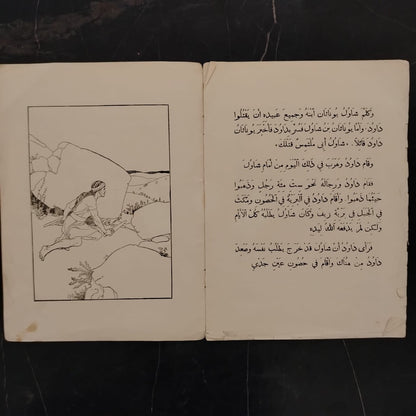 وَكَلَّمَ شَاوُلُ يُونَاثَانَ ٱبْنَهُ وَجَمِيعَ عَبِيدِهِ أَنْ يَقْتُلُوا
دَاوُدَ. وَأَمَّا يُونَاثَانُ بْنُ شَاوُلَ فَسُرَّ بِدَاوُدَ فَأَخْبَرَ يُونَاثَانُ
دَاوُدَ قَائِلاً. شَاوُلُ أَبِي مُلْتَمِسٌ قَتْلَكَ.
وَقَامَ دَاوُدُ وَهَرَبَ فِي ذٰلِكَ ٱلْيَوْمِ مِنْ أَمَامِ شَاوُلَ
فَقَامَ دَاوُدُ وَرِجَالُهُ نَحْوَ سِتِّ مِئَةِ رَجُلٍ وَذَهَبُوا
حَيْثُمَا ذَهَبُوا. وَأَقَامَ دَاوُدُ فِي ٱلْبَرِّيَّةِ فِي ٱلْحُصُونِ وَمَكَثَ
فِي ٱلْجَبَلِ فِي بَرِّيَّةِ زِيفٍ وَكَانَ شَاوُلُ يَطْلُبُهُ كُلَّ ٱلْأَيَّامِ
وَلٰكِنْ لَمْ يَدْفَعْهُ ٱللّٰهُ لِيَدِهِ
فَرَأَى دَاوُدُ أَنَّ شَاوُلَ قَدْ خَرَجَ يَطْلُبُ نَفْسَهُ وَصَعِدَ
دَاوُدُ مِنْ هُنَاكَ وَأَقَامَ فِي حُصُونِ عَيْنِ جَدْيٍ